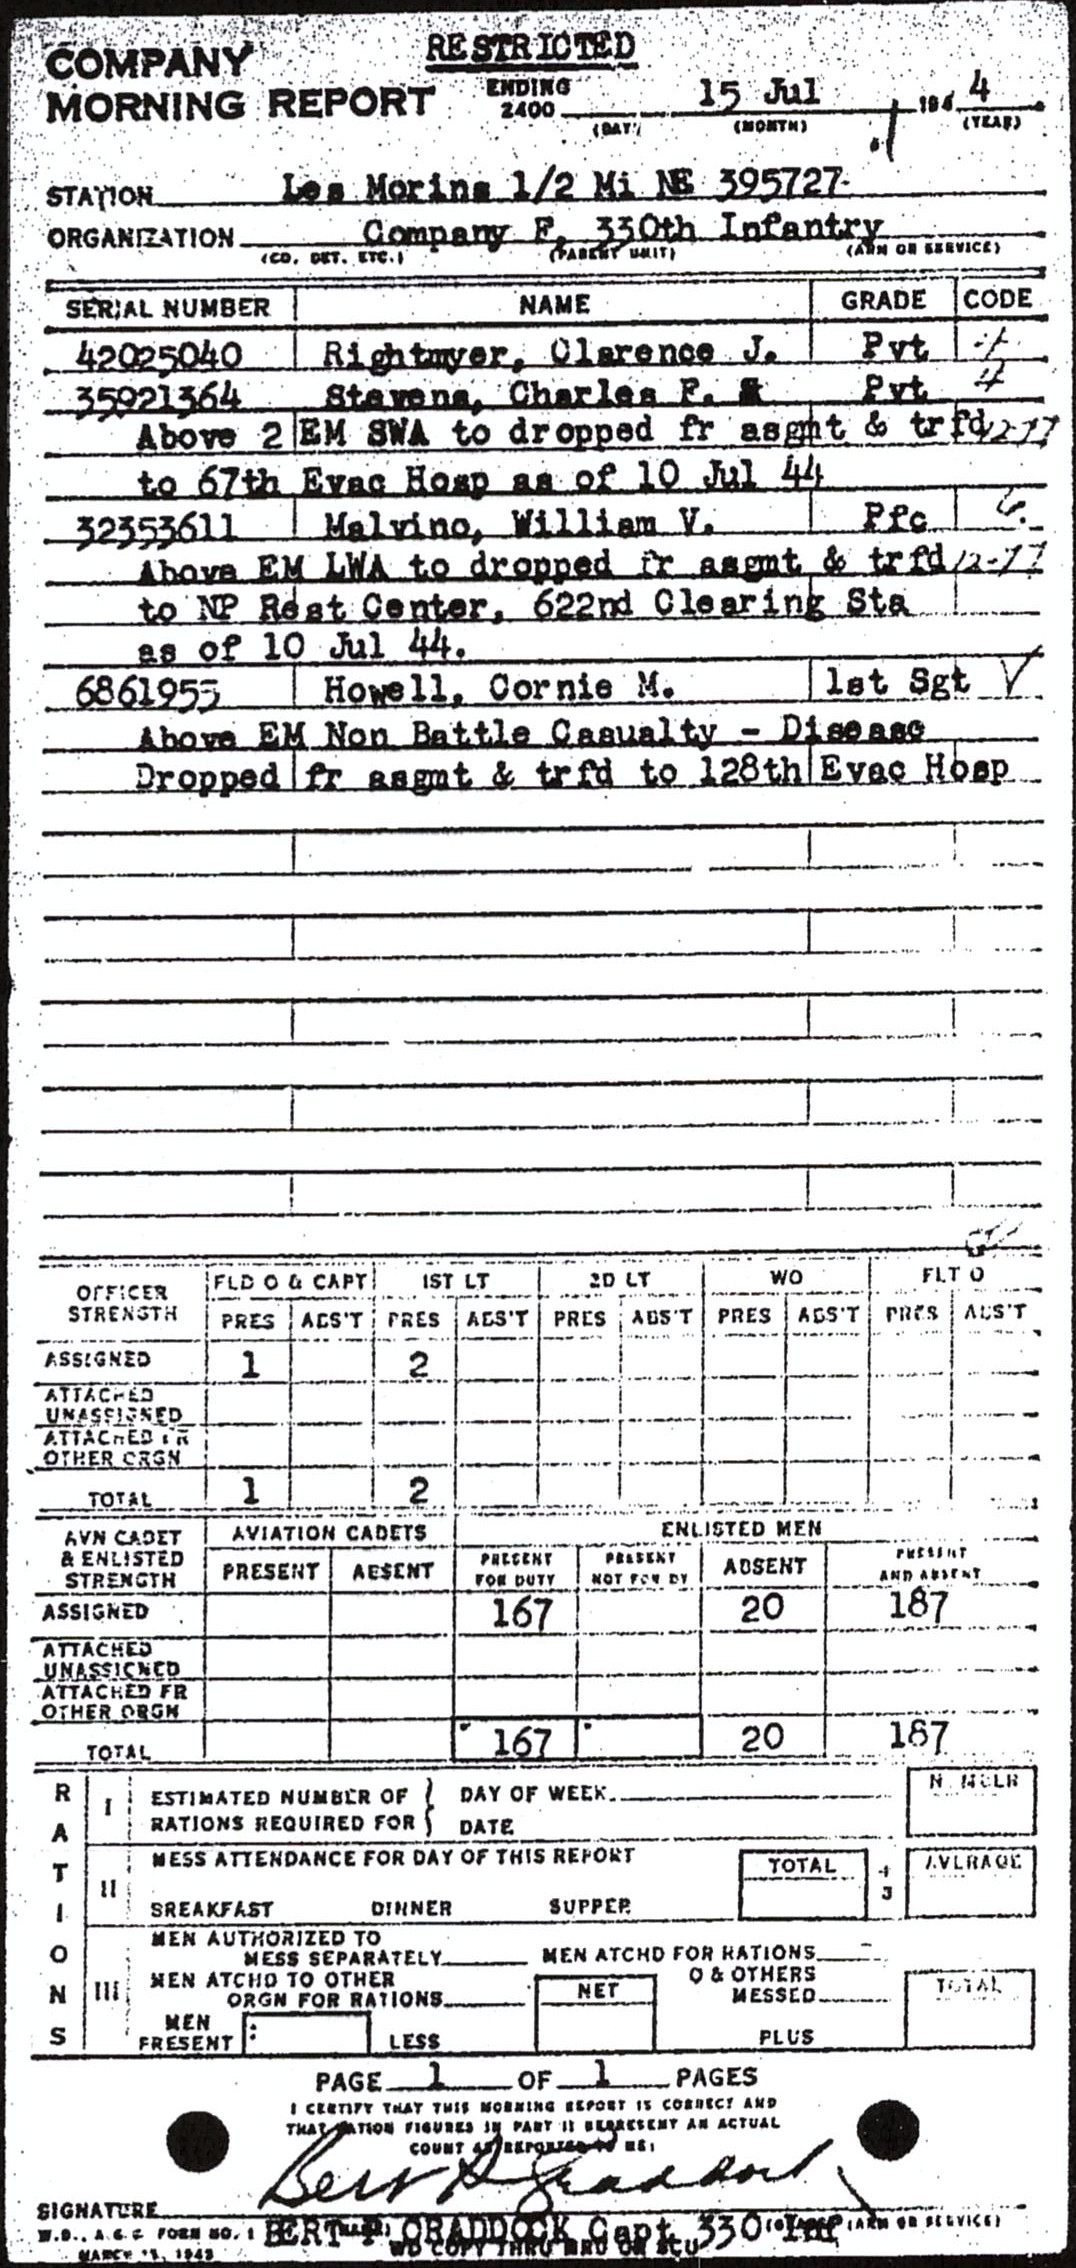 RESTRICTED
COMPANY
MORNING REPORT
ENDING
2400
15 Jul 1944
(DAY) (MONTH) (YEAR)
STATION Les Morins 1/2 Mi NE 395727
ORGANIZATION Company F, 330th Infantry
(CO. DET. ETC.) (PARENT UNIT) (ARM OR SERVICE)
SERIAL NUMBER NAME GRADE CODE
42025040 Rightmyer, Clarence J. Pvt 4
35921364 Stevens, Charles F. Pvt 4
Above 2 EM SWA to dropped fr asgmt & trfd 12-77
to 67th Evac Hosp as of 10 Jul 44
32353611 Malvino, William V. Pfc
Above EM LWA to dropped fr asgmt & trfd 12-77
to NP Rest Center, 622nd Clearing Sta
as of 10 Jul 44.
6861955 Howell, Cornie M. 1st Sgt
Above EM Non Battle Casualty - Disease
Dropped fr asgmt & trfd to 128th Evac Hosp
OFFICER STRENGTH FLD O & CAPT 1ST LT 2D LT WO FLT O
PRES ABS'T PRES ABS'T PRES ABS'T PRES ABS'T PRES ABS'T
ASSIGNED 1 2
ATTACHED UNASSIGNED
ATTACHED FR OTHER ORGN
TOTAL 1 2
AVN CADET & ENLISTED STRENGTH AVIATION CADETS ENLISTED MEN
PRESENT ABSENT PRESENT FOR DUTY PRESENT NOT FOR DY ABSENT PRESENT AND ABSENT
ASSIGNED 167 20 187
ATTACHED UNASSIGNED
ATTACHED FR OTHER ORGN
TOTAL 167 20 187
RATIONS
I ESTIMATED NUMBER OF RATIONS REQUIRED FOR DAY OF WEEK NUMBER
DATE
II MESS ATTENDANCE FOR DAY OF THIS REPORT TOTAL ÷ 3 AVERAGE
BREAKFAST DINNER SUPPER
III MEN AUTHORIZED TO MESS SEPARATELY MEN ATCHD FOR RATIONS
MEN ATCHD TO OTHER ORGN FOR RATIONS NET O & OTHERS MESSED TOTAL
MEN PRESENT LESS PLUS
PAGE 1 OF 1 PAGES
I CERTIFY THAT THIS MORNING REPORT IS CORRECT AND
THAT RATION FIGURES IN PART II REPRESENT AN ACTUAL
COUNT AS REPORTED TO ME:
SIGNATURE Bert P Craddock
BERT P. CRADDOCK Capt 330 Inf (ARM OR SERVICE)
W.D., A.G.O. FORM NO. 1
MARCH 15, 1943
WD COPY THRU MRU OR SCU